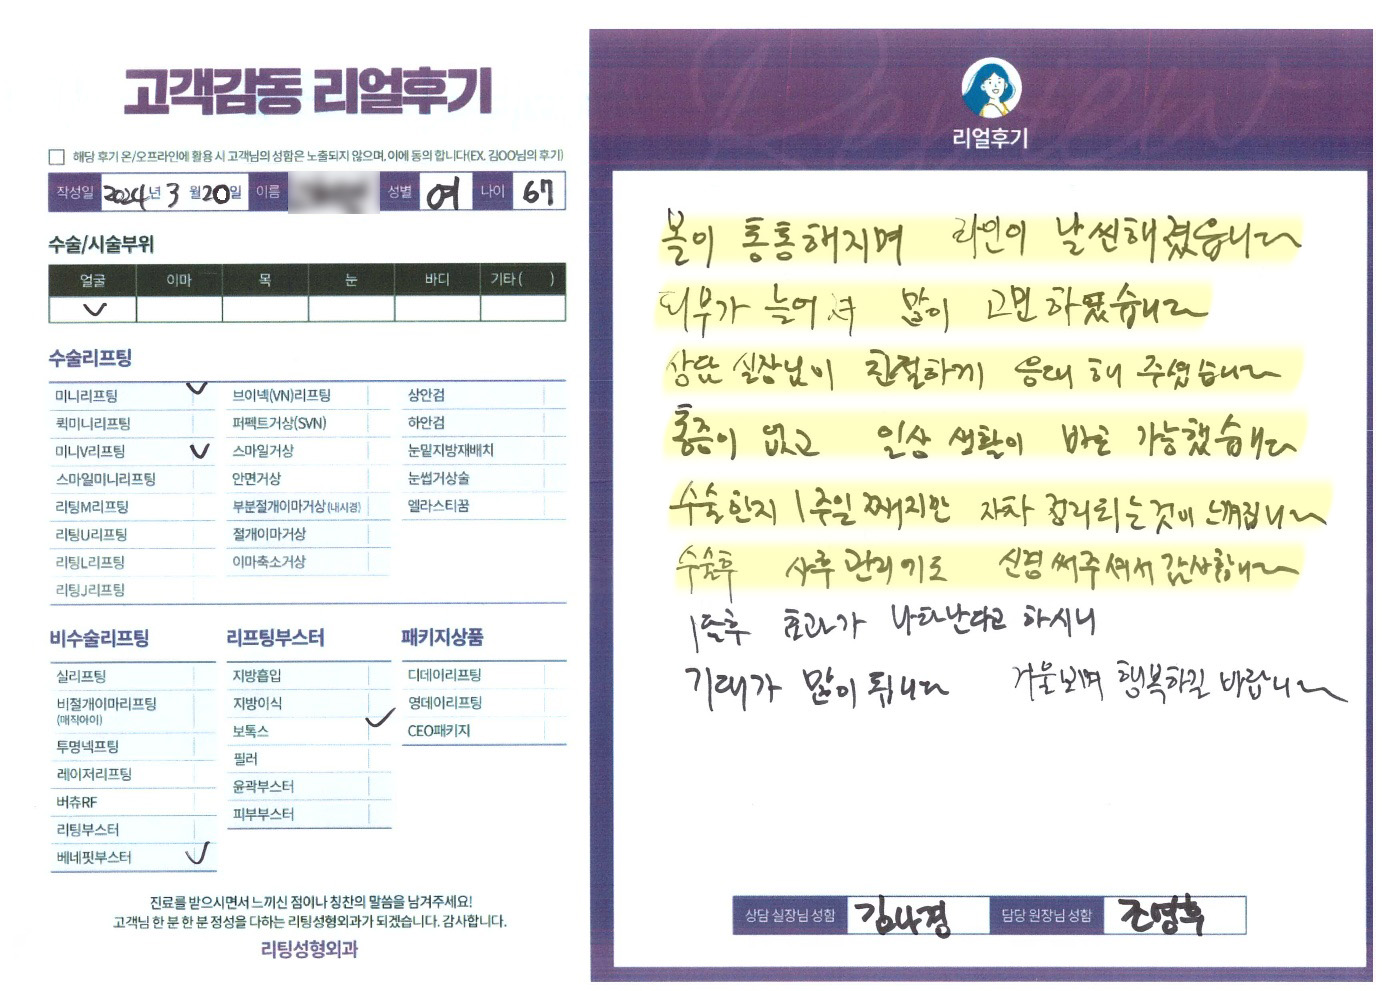 고객감동 리얼후기
해당 후기 온/오프라인에 활용 시 고객님의 성함은 노출되지 않으며, 이에 동의 합니다(EX. 김OO님의 후기)
작성일 2024년 3월 20일 이름 성별 여 나이 67
수술/시술부위
얼굴 이마 목 눈 바디 기타 ( )
수술리프팅
미니리프팅
퀵미니리프팅
미니V리프팅
스마일미니리프팅
리팅M리프팅
리팅U리프팅
리팅L리프팅
리팅J리프팅
브이넥(VN)리프팅
퍼펙트거상(SVN)
스마일거상
안면거상
부분절개이마거상(내시경)
절개이마거상
이마축소거상
상안검
하안검
눈밑지방재배치
눈썹거상술
엘라스티꿈
비수술리프팅
실리프팅
비절개이마리프팅
(매직아이)
투명넥프팅
레이저리프팅
버츄RF
리팅부스터
베네핏부스터
리프팅부스터
지방흡입
지방이식
보톡스
필러
윤곽부스터
피부부스터
패키지상품
디데이리프팅
영데이리프팅
CEO패키지
진료를 받으시면서 느끼신 점이나 칭찬의 말씀을 남겨주세요!
고객님 한 분 한 분 정성을 다하는 리팅성형외과가 되겠습니다. 감사합니다.
리팅성형외과
Review
리얼후기
볼이 통통해지며 라인이 날씬해졌읍니다
피부가 늘어져 많이 고민하였습니다
상담 실장님이 친절하게 응대 해 주셨습니다
통증이 없고 일상 생활이 바로 가능했습니다
수술한지 1주일 째지만 차차 정리되는것이 느껴집니다
수술후 사후관리기도 신경써주셔서 감사합니다
1달후 효과가 나타난다고 하시니
기대가 많이 됩니다 거울보며 행복하길 바랍니다
상담 실장님 성함 김나경 담당 원장님 성함 조영후